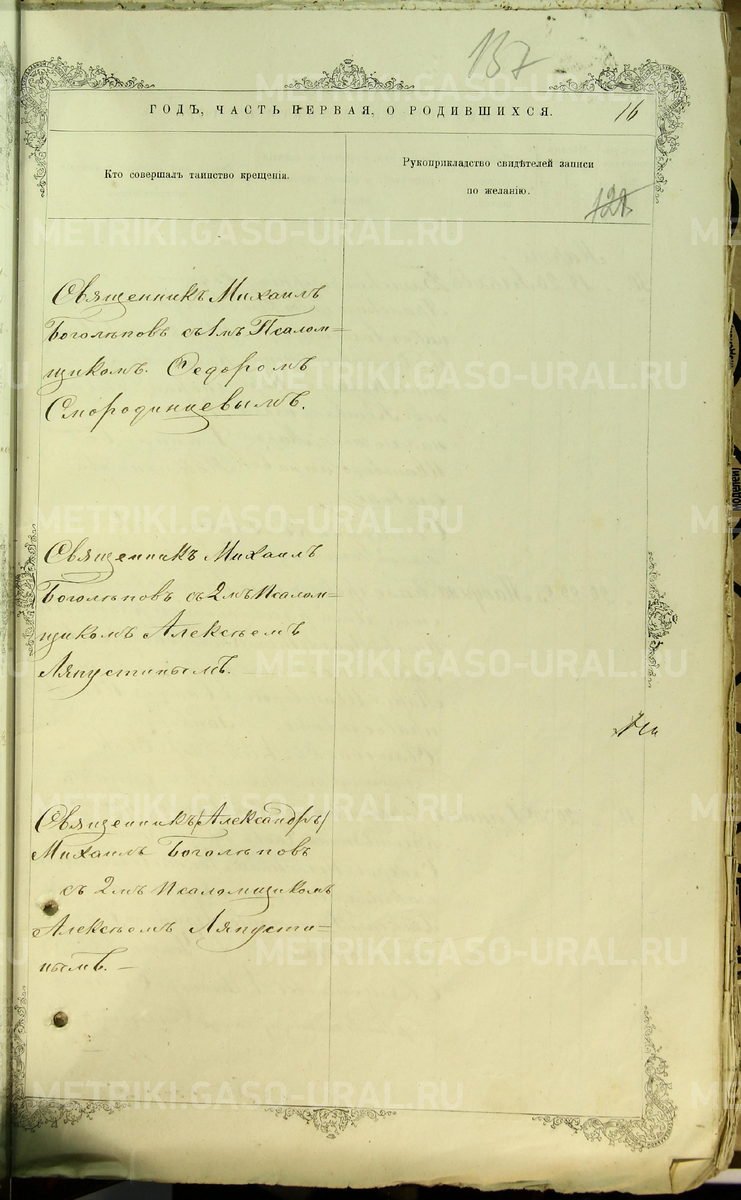 137
ГОДЪ, ЧАСТЬ ПЕРВАЯ, О РОДИВШИХСЯ.
16
Кто совершалъ таинство крещенія.
Рукоприкладство свидѣтелей записи
по желанію.
Священникъ Михаилъ
Боголѣповъ съ 1мъ Псалом-
щикомъ Ѳедоромъ
Смородинцевымъ.
Священникъ Михаилъ
Боголѣповъ съ 2мъ Псалом-
щикомъ Алексѣемъ
Ляпустинымъ.
Священникъ /Александръ/
Михаилъ Боголѣповъ
съ 2мъ Псаломщикомъ
Алексѣемъ Ляпусти-
нымъ. —
METRIKI.GASO-URAL.RU